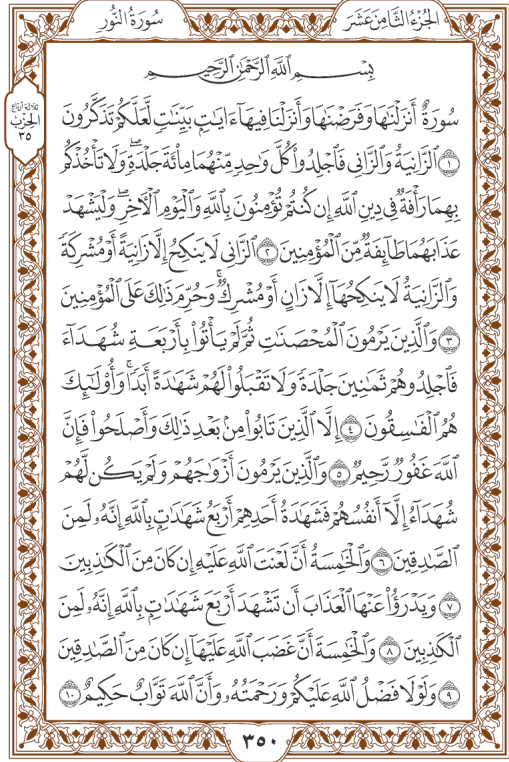 الجُزْءُ الثَّامِنَ عَشَرَ
سُورَةُ النُّورِ
ثلاثة أرباع
الحِزْب
٣٥
بِسْمِ اللَّهِ الرَّحْمَٰنِ الرَّحِيمِ
سُورَةٌ أَنزَلْنَٰهَا وَفَرَضْنَٰهَا وَأَنزَلْنَا فِيهَآ ءَايَٰتٍۭ بَيِّنَٰتٍ لَّعَلَّكُمْ تَذَكَّرُونَ
١ ٱلزَّانِيَةُ وَٱلزَّانِى فَٱجْلِدُوا۟ كُلَّ وَٰحِدٍ مِّنْهُمَا مِا۟ئَةَ جَلْدَةٍ ۖ وَلَا تَأْخُذْكُم
بِهِمَا رَأْفَةٌ فِى دِينِ ٱللَّهِ إِن كُنتُمْ تُؤْمِنُونَ بِٱللَّهِ وَٱلْيَوْمِ ٱلْأَخِرِ ۖ وَلْيَشْهَدْ
عَذَابَهُمَا طَآئِفَةٌ مِّنَ ٱلْمُؤْمِنِينَ ٢ ٱلزَّانِى لَا يَنكِحُ إِلَّا زَانِيَةً أَوْ مُشْرِكَةً
وَٱلزَّانِيَةُ لَا يَنكِحُهَآ إِلَّا زَانٍ أَوْ مُشْرِكٌ ۚ وَحُرِّمَ ذَٰلِكَ عَلَى ٱلْمُؤْمِنِينَ
٣ وَٱلَّذِينَ يَرْمُونَ ٱلْمُحْصَنَٰتِ ثُمَّ لَمْ يَأْتُوا۟ بِأَرْبَعَةِ شُهَدَآءَ
فَٱجْلِدُوهُمْ ثَمَٰنِينَ جَلْدَةً وَلَا تَقْبَلُوا۟ لَهُمْ شَهَٰدَةً أَبَدًا ۚ وَأُو۟لَٰٓئِكَ
هُمُ ٱلْفَٰسِقُونَ ٤ إِلَّا ٱلَّذِينَ تَابُوا۟ مِنۢ بَعْدِ ذَٰلِكَ وَأَصْلَحُوا۟ فَإِنَّ
ٱللَّهَ غَفُورٌ رَّحِيمٌ ٥ وَٱلَّذِينَ يَرْمُونَ أَزْوَٰجَهُمْ وَلَمْ يَكُن لَّهُمْ
شُهَدَآءُ إِلَّآ أَنفُسُهُمْ فَشَهَٰدَةُ أَحَدِهِمْ أَرْبَعُ شَهَٰدَٰتٍۭ بِٱللَّهِ إِنَّهُۥ لَمِنَ
ٱلصَّٰدِقِينَ ٦ وَٱلْخَٰمِسَةُ أَنَّ لَعْنَتَ ٱللَّهِ عَلَيْهِ إِن كَانَ مِنَ ٱلْكَٰذِبِينَ
٧ وَيَدْرَؤُا۟ عَنْهَا ٱلْعَذَابَ أَن تَشْهَدَ أَرْبَعَ شَهَٰدَٰتٍۭ بِٱللَّهِ إِنَّهُۥ لَمِنَ
ٱلْكَٰذِبِينَ ٨ وَٱلْخَٰمِسَةَ أَنَّ غَضَبَ ٱللَّهِ عَلَيْهَآ إِن كَانَ مِنَ ٱلصَّٰدِقِينَ
٩ وَلَوْلَا فَضْلُ ٱللَّهِ عَلَيْكُمْ وَرَحْمَتُهُۥ وَأَنَّ ٱللَّهَ تَوَّابٌ حَكِيمٌ ١٠
٣٥٠